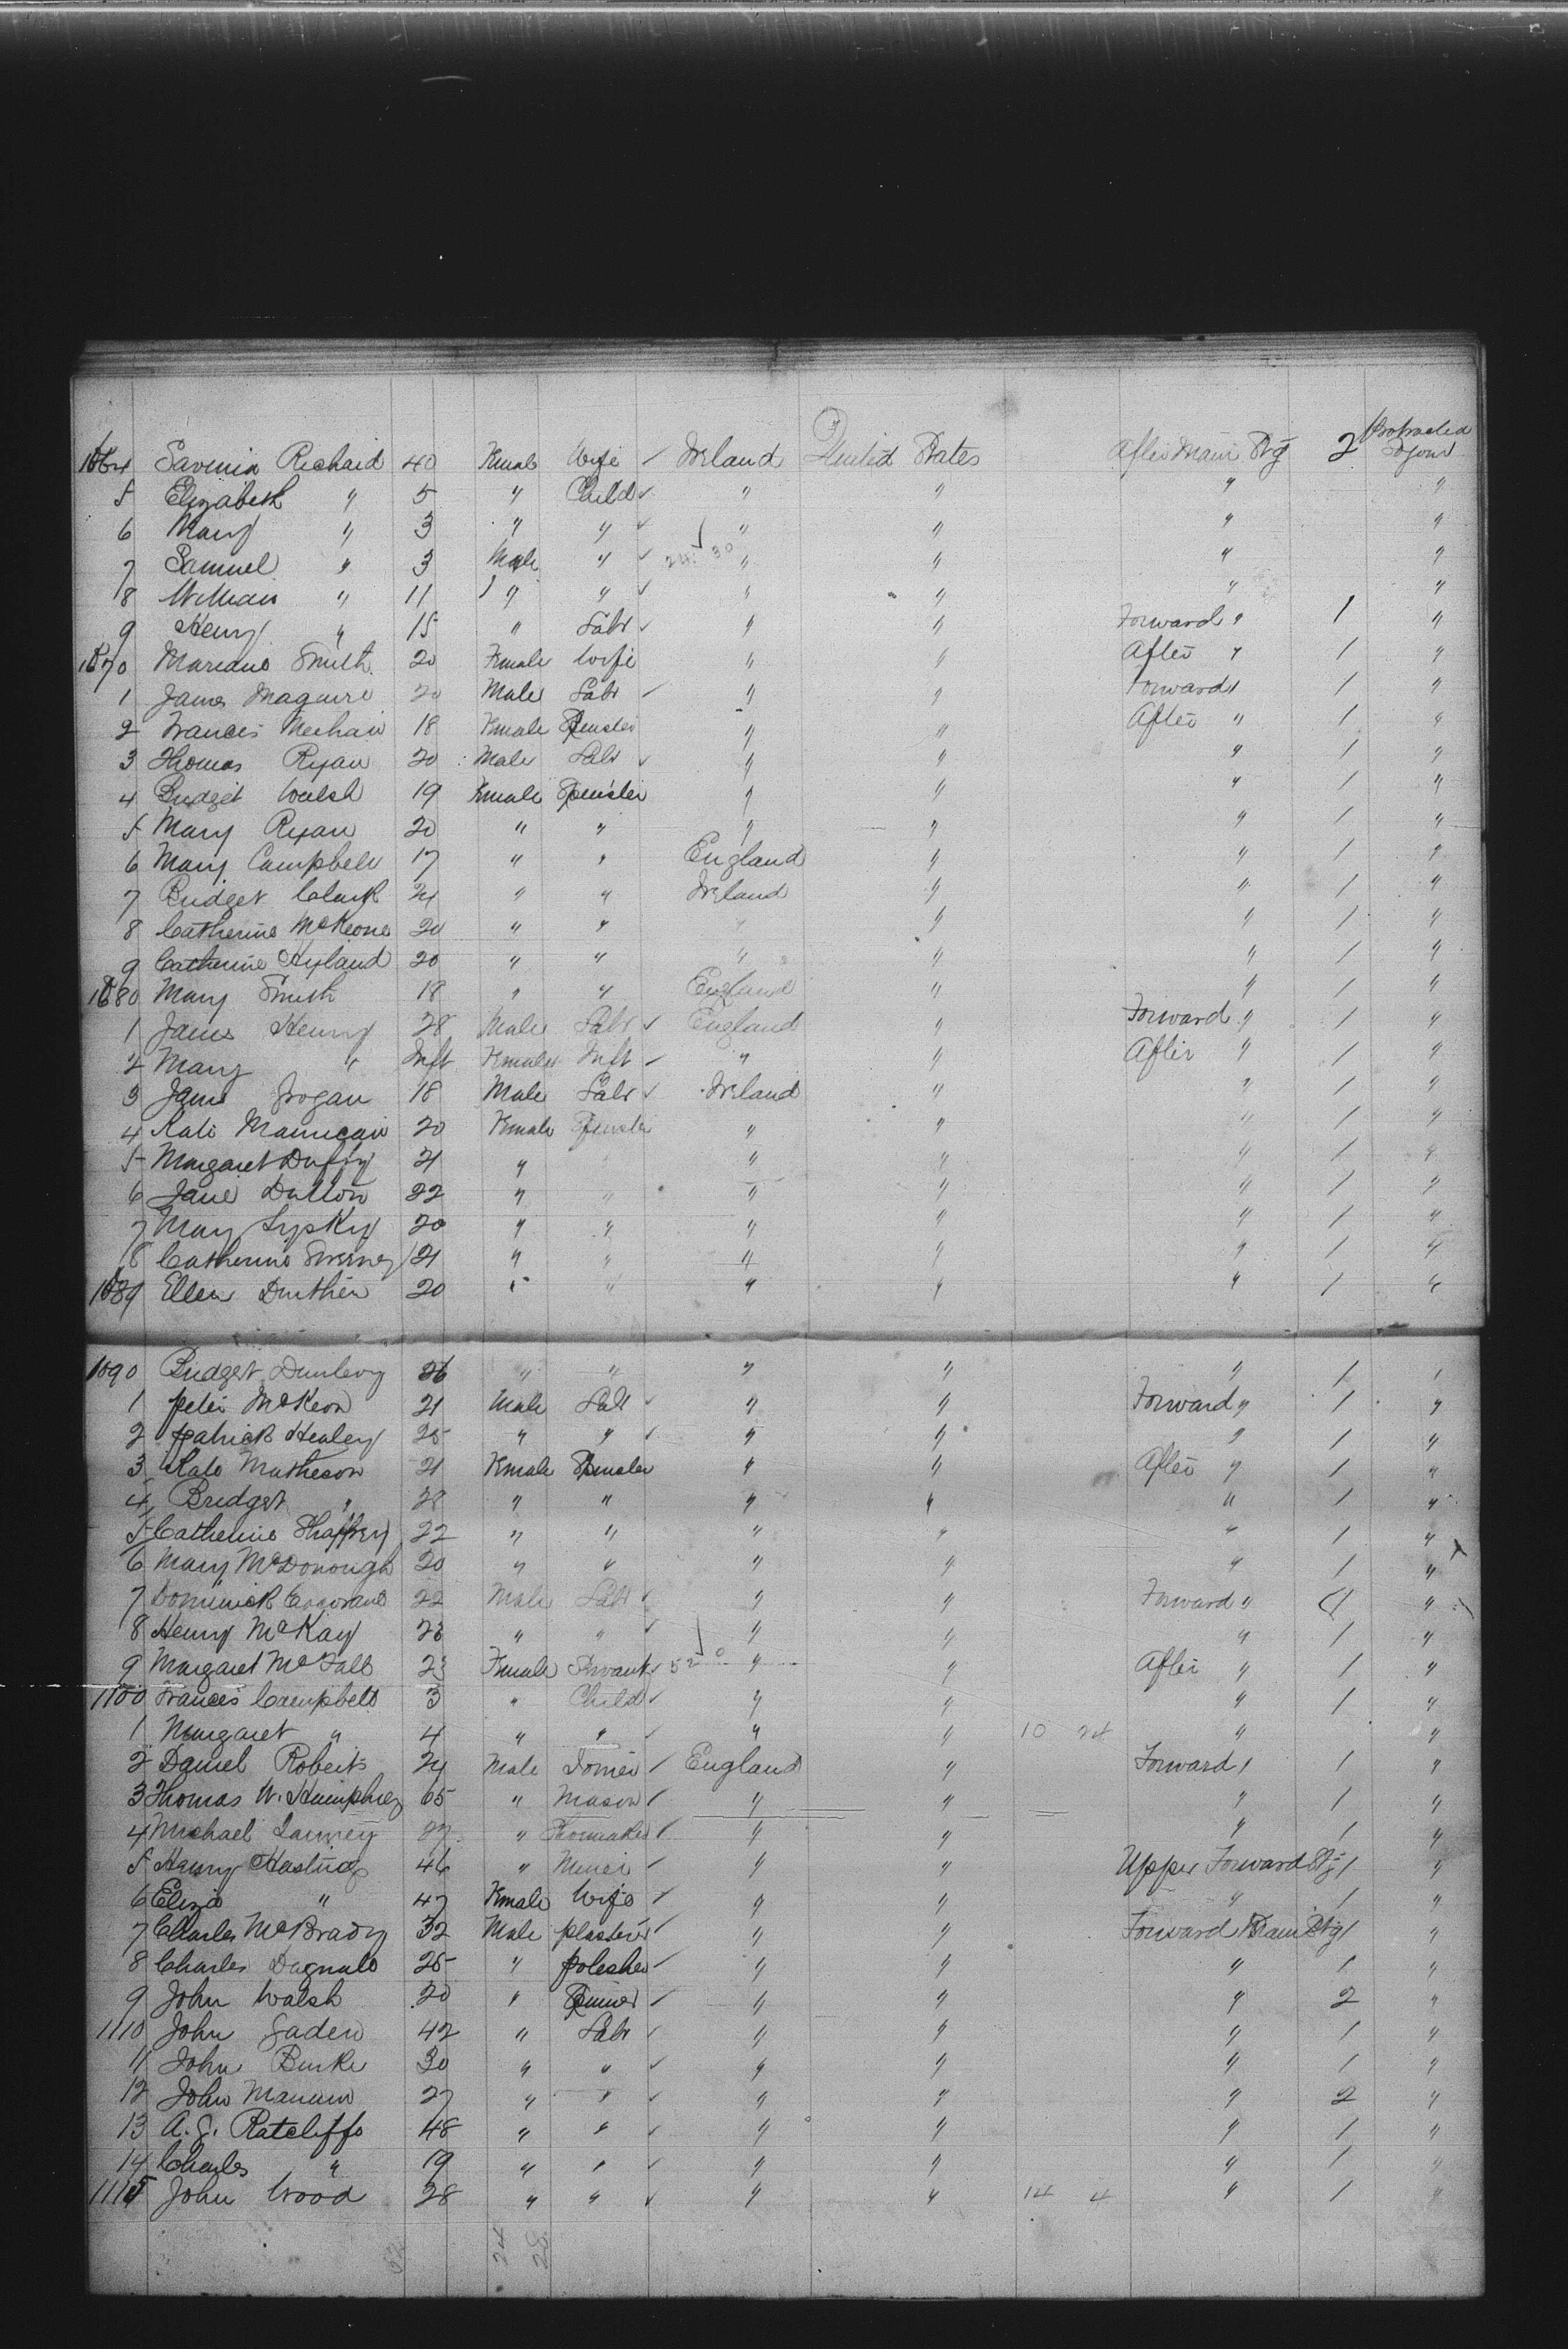 1064 Savinia Richard 40 Female Wife ✓ Ireland United States After Main Stg 2 Protracted Sojourn
5 Elizabeth " 5 " Child ✓ " " " "
6 Mary " 3 " " ✓ " " " "
7 Samuel " 3 Male " ✓ 24 30 " " " "
8 William " 11 " " ✓ " " " "
9 Henry " 15 " Labr ✓ " " Forward " 1 "
1070 Mareano Smith 20 Female Wife " " After " 1 "
1 James Maguire 20 Male Labr ✓ " " Forward " 1 "
2 Frances Meehan 18 Female Spinster " " After " 1 "
3 Thomas Ryan 20 Male Labr ✓ " " " 1 "
4 Bridget Walsh 19 Female Spinster " " " 1 "
5 Mary Ryan 20 " " " " " 1 "
6 Mary Campbell 17 " " England " " 1 "
7 Bridget Clark 24 " " Ireland " " 1 "
8 Catherine McKeone 20 " " " " " 1 "
9 Catherine Hyland 20 " " " " " 1 "
1080 Mary Smith 18 " " England " " 1 "
1 James Henry 28 Male Labr ✓ England " Forward " 1 "
2 Mary " Inft Female Inft ✓ " " After " 1 "
3 James Grogan 18 Male Labr ✓ Ireland " " 1 "
4 Kate Mannican 20 Female Spinster " " " 1 "
5 Margaret Duffy 21 " " " " 1 "
6 Jane Dutton 22 " " " " " 1 "
7 Mary Lypsky 20 " " " " " 1 "
8 Catherine Sweeney 21 " " " " " 1 "
1089 Ellen Durthin 20 " " " " " 1 "
1090 Bridget Dunlevy 26 " " " " " 1 "
1 Peter McKeon 21 Male Labr ✓ " " Forward " 1 "
2 Patrick Healey 25 " " ✓ " " " 1 "
3 Kate Matheson 21 Female Spinster " " After " 1 "
4 Bridget " 28 " " " " " 1 "
5 Catherine Shaffrey 22 " " " " " 1 "
6 Mary McDonough 20 " " " " " 1 "
7 Dominick Corcorane 22 Male Labr ✓ " " Forward " 1 "
8 Henry McKay 23 " " ✓ " " " 1 "
9 Margaret McFall 23 Female Servant ✓ " " After " 1 "
1100 Frances Campbell 3 " Child ✓ " " " 1 "
1 Margaret " 4 " " ✓ " " 10 24 " "
2 Daniel Roberts 24 Male Joiner ✓ England " Forward " 1 "
3 Thomas W. Humphrey 65 " Mason ✓ " " " 1 "
4 Michael " Shoemaker ✓ " " " 1 "
5 Henry Hastings 46 " Miner ✓ " " Upper Forward Stg 1 "
6 Eliza " 47 Female Wife ✓ " " " 1 "
7 Charles McBrady 32 Male plasterer ✓ " " Forward Main Stg 1 "
8 Charles Dagnall 25 " polisher ✓ " " " 1 "
9 John Walsh 20 " Spinner ✓ " " " 2 "
1110 John Gaden 42 " Labr ✓ " " " 1 "
11 John Burke 30 " " ✓ " " " 1 "
12 John 27 " " ✓ " " " 2 "
13 A. G. Ratcliffe 48 " " ✓ " " " 1 "
14 Charles " 19 " " ✓ " " " 1 "
1115 John Wood 28 " " ✓ " " 14 4 " 1 "
24 28